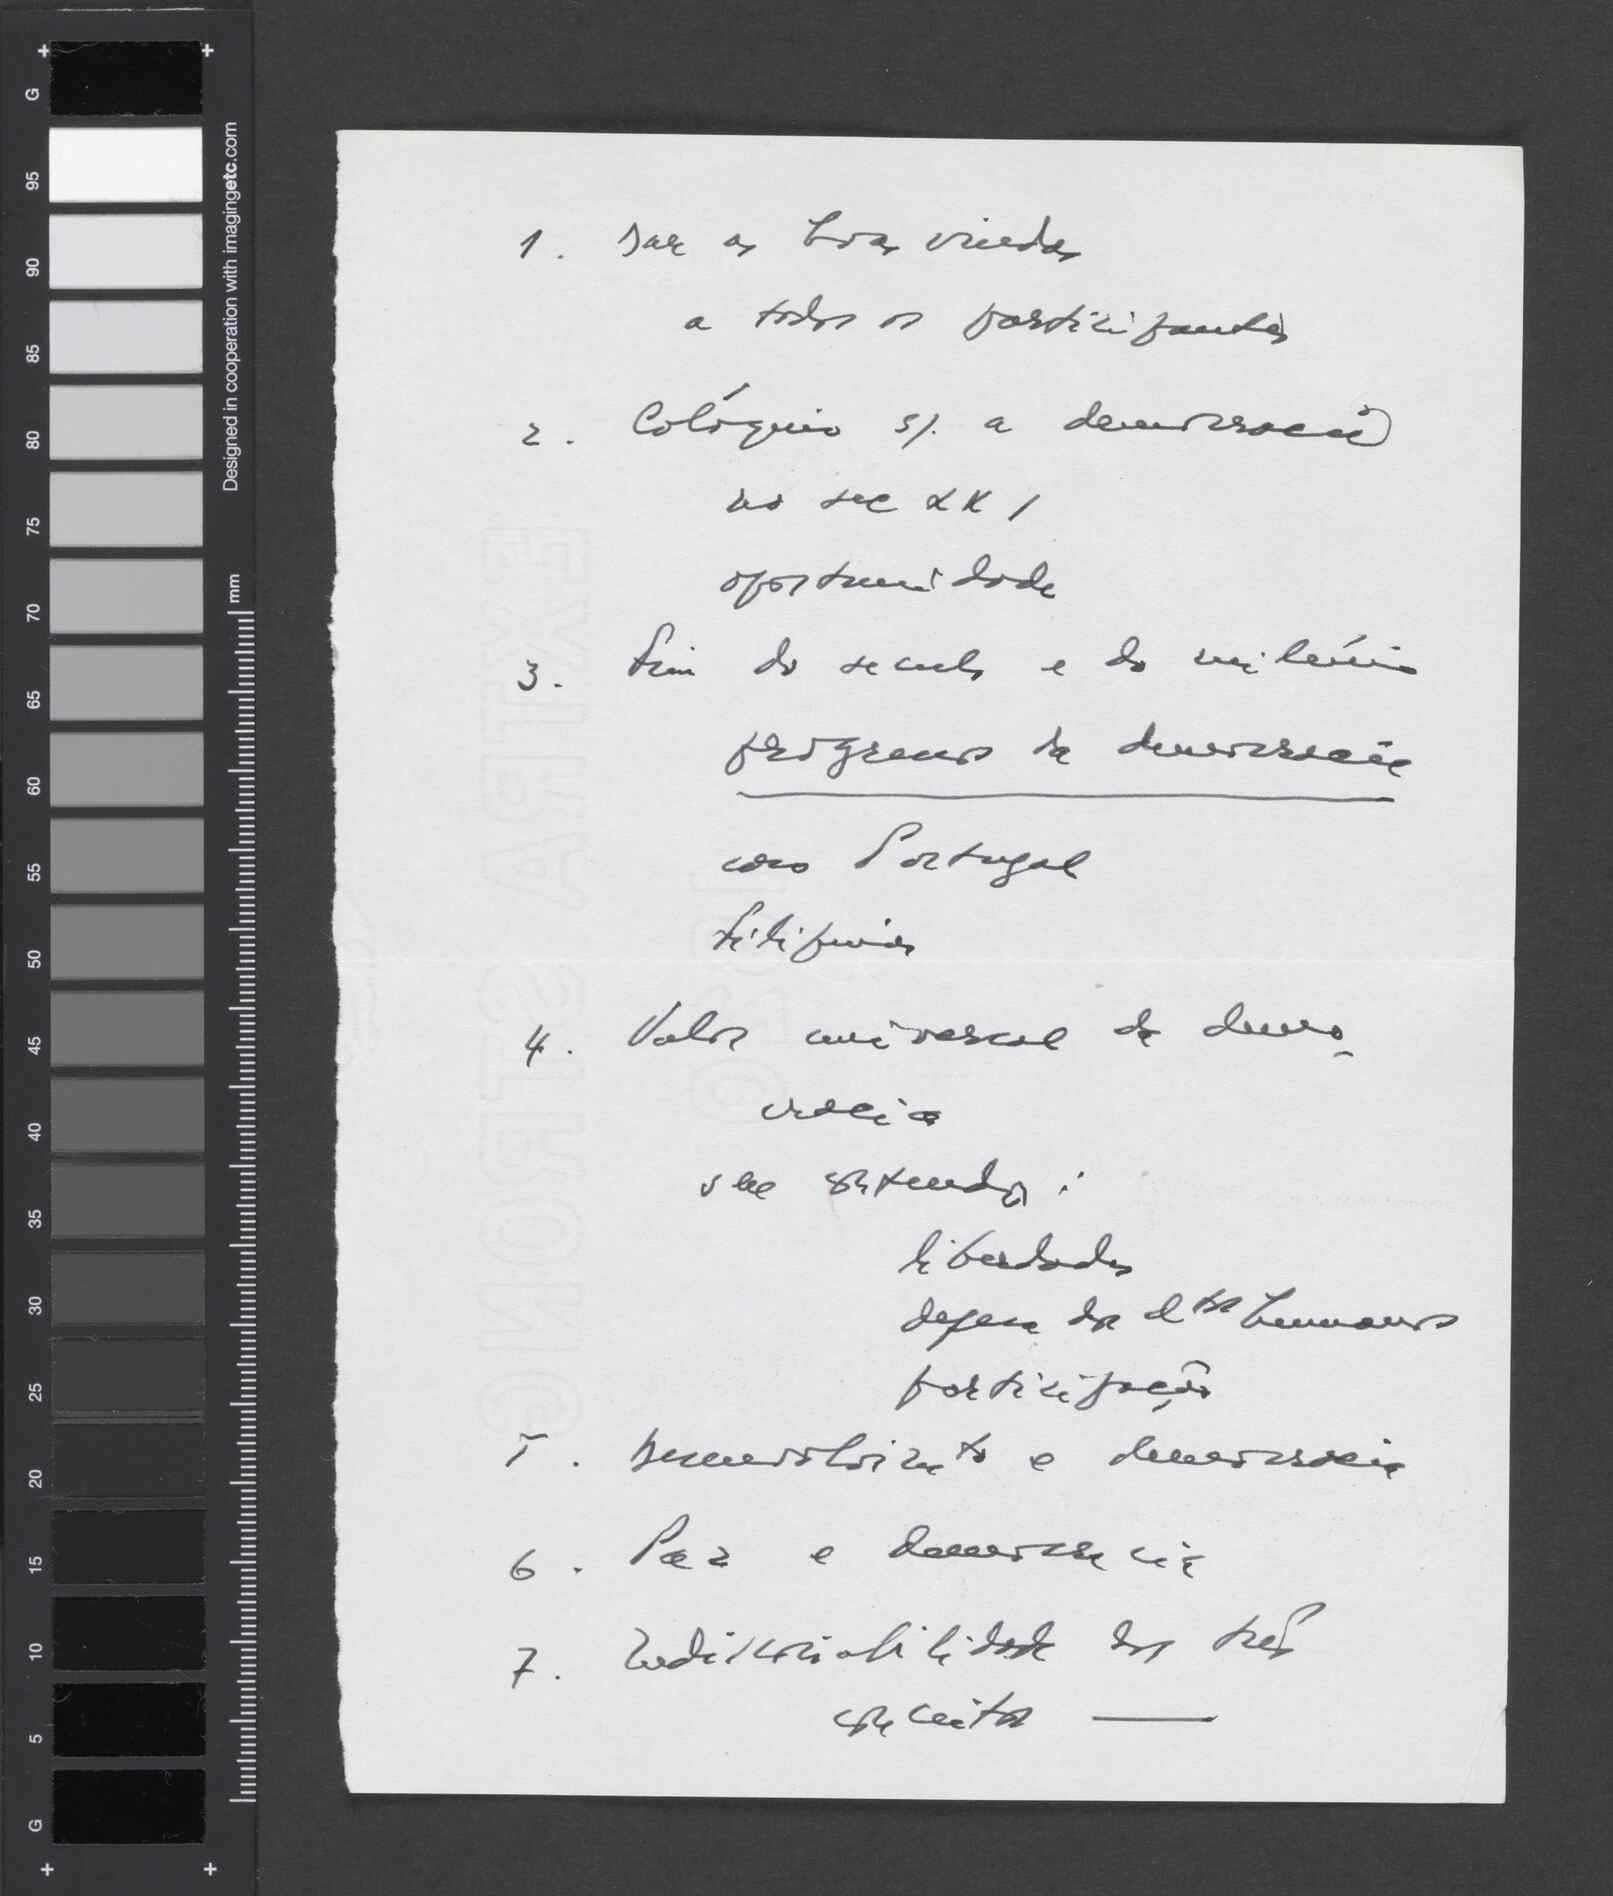 1. Dar as boas vindas
a todos os participantes
2. Colóquio s/. a democracia
no sec XXI
oportunidade
3. Fim do seculo e do milénio
progresso da democracia
caso Portugal
Filipinas
4. Valor universal da demo-
cracia
seu conteudo:
liberdades
defesa dos dtos humanos
participação
5. Desenvolvimto e democracia
6. Paz e democracia
7. Indissociabilidade dos três
conceitos —
EXTRA STRONG
G 95 90 85 80 75 70 65 60 55 50 45 40 35 30 25 20 15 10 5 G
Designed in cooperation with imagingetc.com
mm